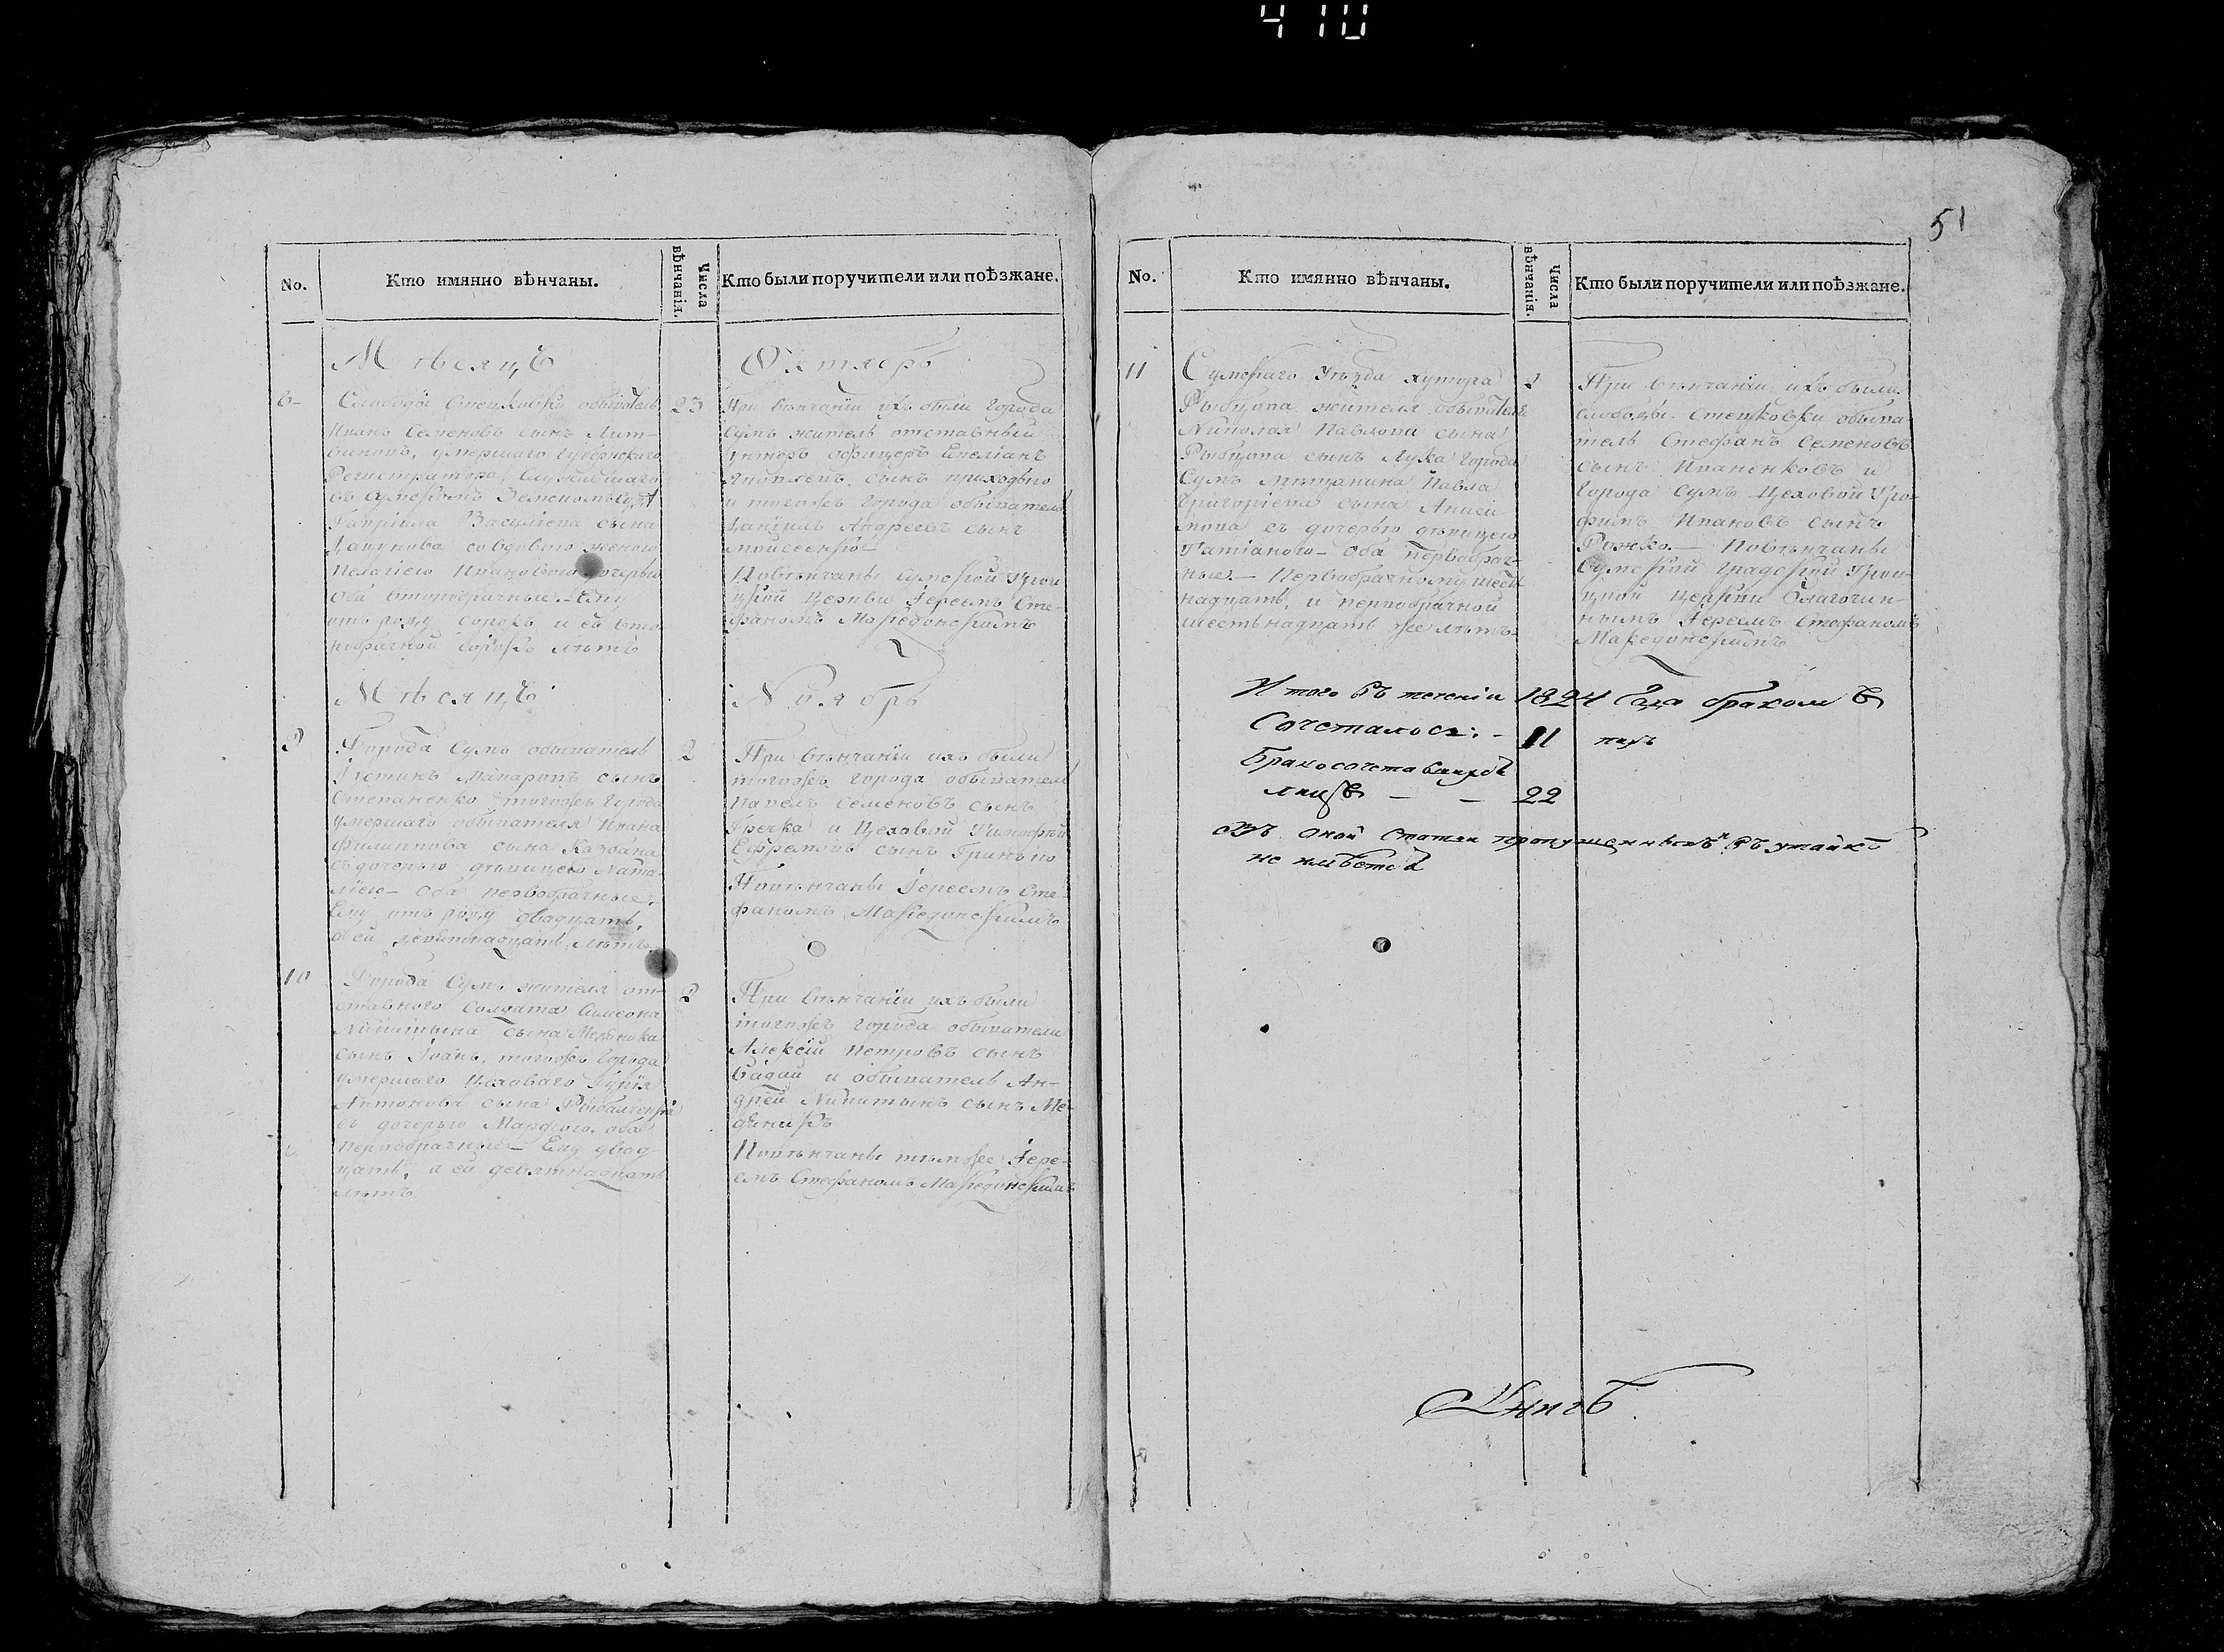 410
51
No.
Кто имянно вѣнчаны.
Числа вѣнчанія.
Кто были поручители или поѣзжане.
Мѣсяцъ
Октябрь
Слободы Стецковки обыватель
Иванъ Семеновъ сынъ Лит-
виновъ, умершаго Губернскаго
Регистратора, служившаго
въ Сумскомъ Земскомъ
Гавріила Василіева сына
со вдовою женою
Пелагіею Ивановою дочерью
оба второбрачные. Ему
отъ роду сорокъ и ей вто-
робрачной сорокъ лѣтъ
23
При вѣнчаніи ихъ были города
Сумъ житель отставный
унтеръ офицеръ Емеліанъ
Яковлевъ сынъ
и тогожъ города обыватель
Даніилъ Андреевъ сынъ
Мойсеенко
Повѣнчаны Сумской Трои-
цкой Церкви Іереемъ Сте-
фаномъ Македонскимъ
Мѣсяцъ
Ноябрь
9
Города Сумъ обыватель
Іустинъ Макаровъ сынъ
Степаненко тогожъ города
умершаго обывателя Ивана
Филиппова сына
съ дочерью дѣвицею Ната-
ліею оба первобрачные.
Ему отъ роду двадцать,
а ей девятнадцать лѣтъ
2
При вѣнчаніи ихъ были
тогожъ города обыватели
Павелъ Семеновъ сынъ
Гречка и Цеховой Тимофей
Ефремовъ сынъ
Повѣнчаны Іереемъ Сте-
фаномъ Македонскимъ
10
Города Сумъ жителя от-
ставного солдата Симеона
Никитина сына
сынъ Іоанъ, тогожъ города
умершаго Цеховаго Гурія
Антонова сына Рыбалченка
съ дочерью Марфою, оба
первобрачные Ему двад-
цать, а ей девятнадцать
лѣтъ
2
При вѣнчаніи ихъ были
тогожъ города обыватели
Алексій Петровъ сынъ
и обыватель Ан-
дрей Никитинъ сынъ Ме-
Повѣнчаны тѣмже Іере-
емъ Стефаномъ Македонскимъ
No.
Кто имянно вѣнчаны.
Числа вѣнчанія.
Кто были поручители или поѣзжане.
11
Сумскаго уѣзда хутора
Рыбцова жителя обывателя
Николая Павлова сына
Рыбцова сынъ Лука города
Сумъ мѣщанина Павла
Григоріева сына Аниси-
мова съ дочерью дѣвицею
Татіаною оба первобрач-
ные. Первобрачному шест-
надцать, и первобрачной
шестнадцать же лѣтъ.
2
При вѣнчаніи ихъ были
слободы Стецковки обыва-
тель Стефанъ Семеновъ
сынъ Иваненковъ и
города Сумъ Цеховой Тро-
фимъ Ивановъ сынъ
Рожко. Повѣнчаны
Сумской градской Трои-
цкой церкви Благочин-
нымъ Іереемъ Стефаномъ
Македонскимъ
Итого въ теченіи 1824 Года бракомъ
Сочеталось: 11 паръ
Бракосочетавшихся
лицъ 22
Въ оной статьи пропущенныхъ въ утайкѣ
не имѣется